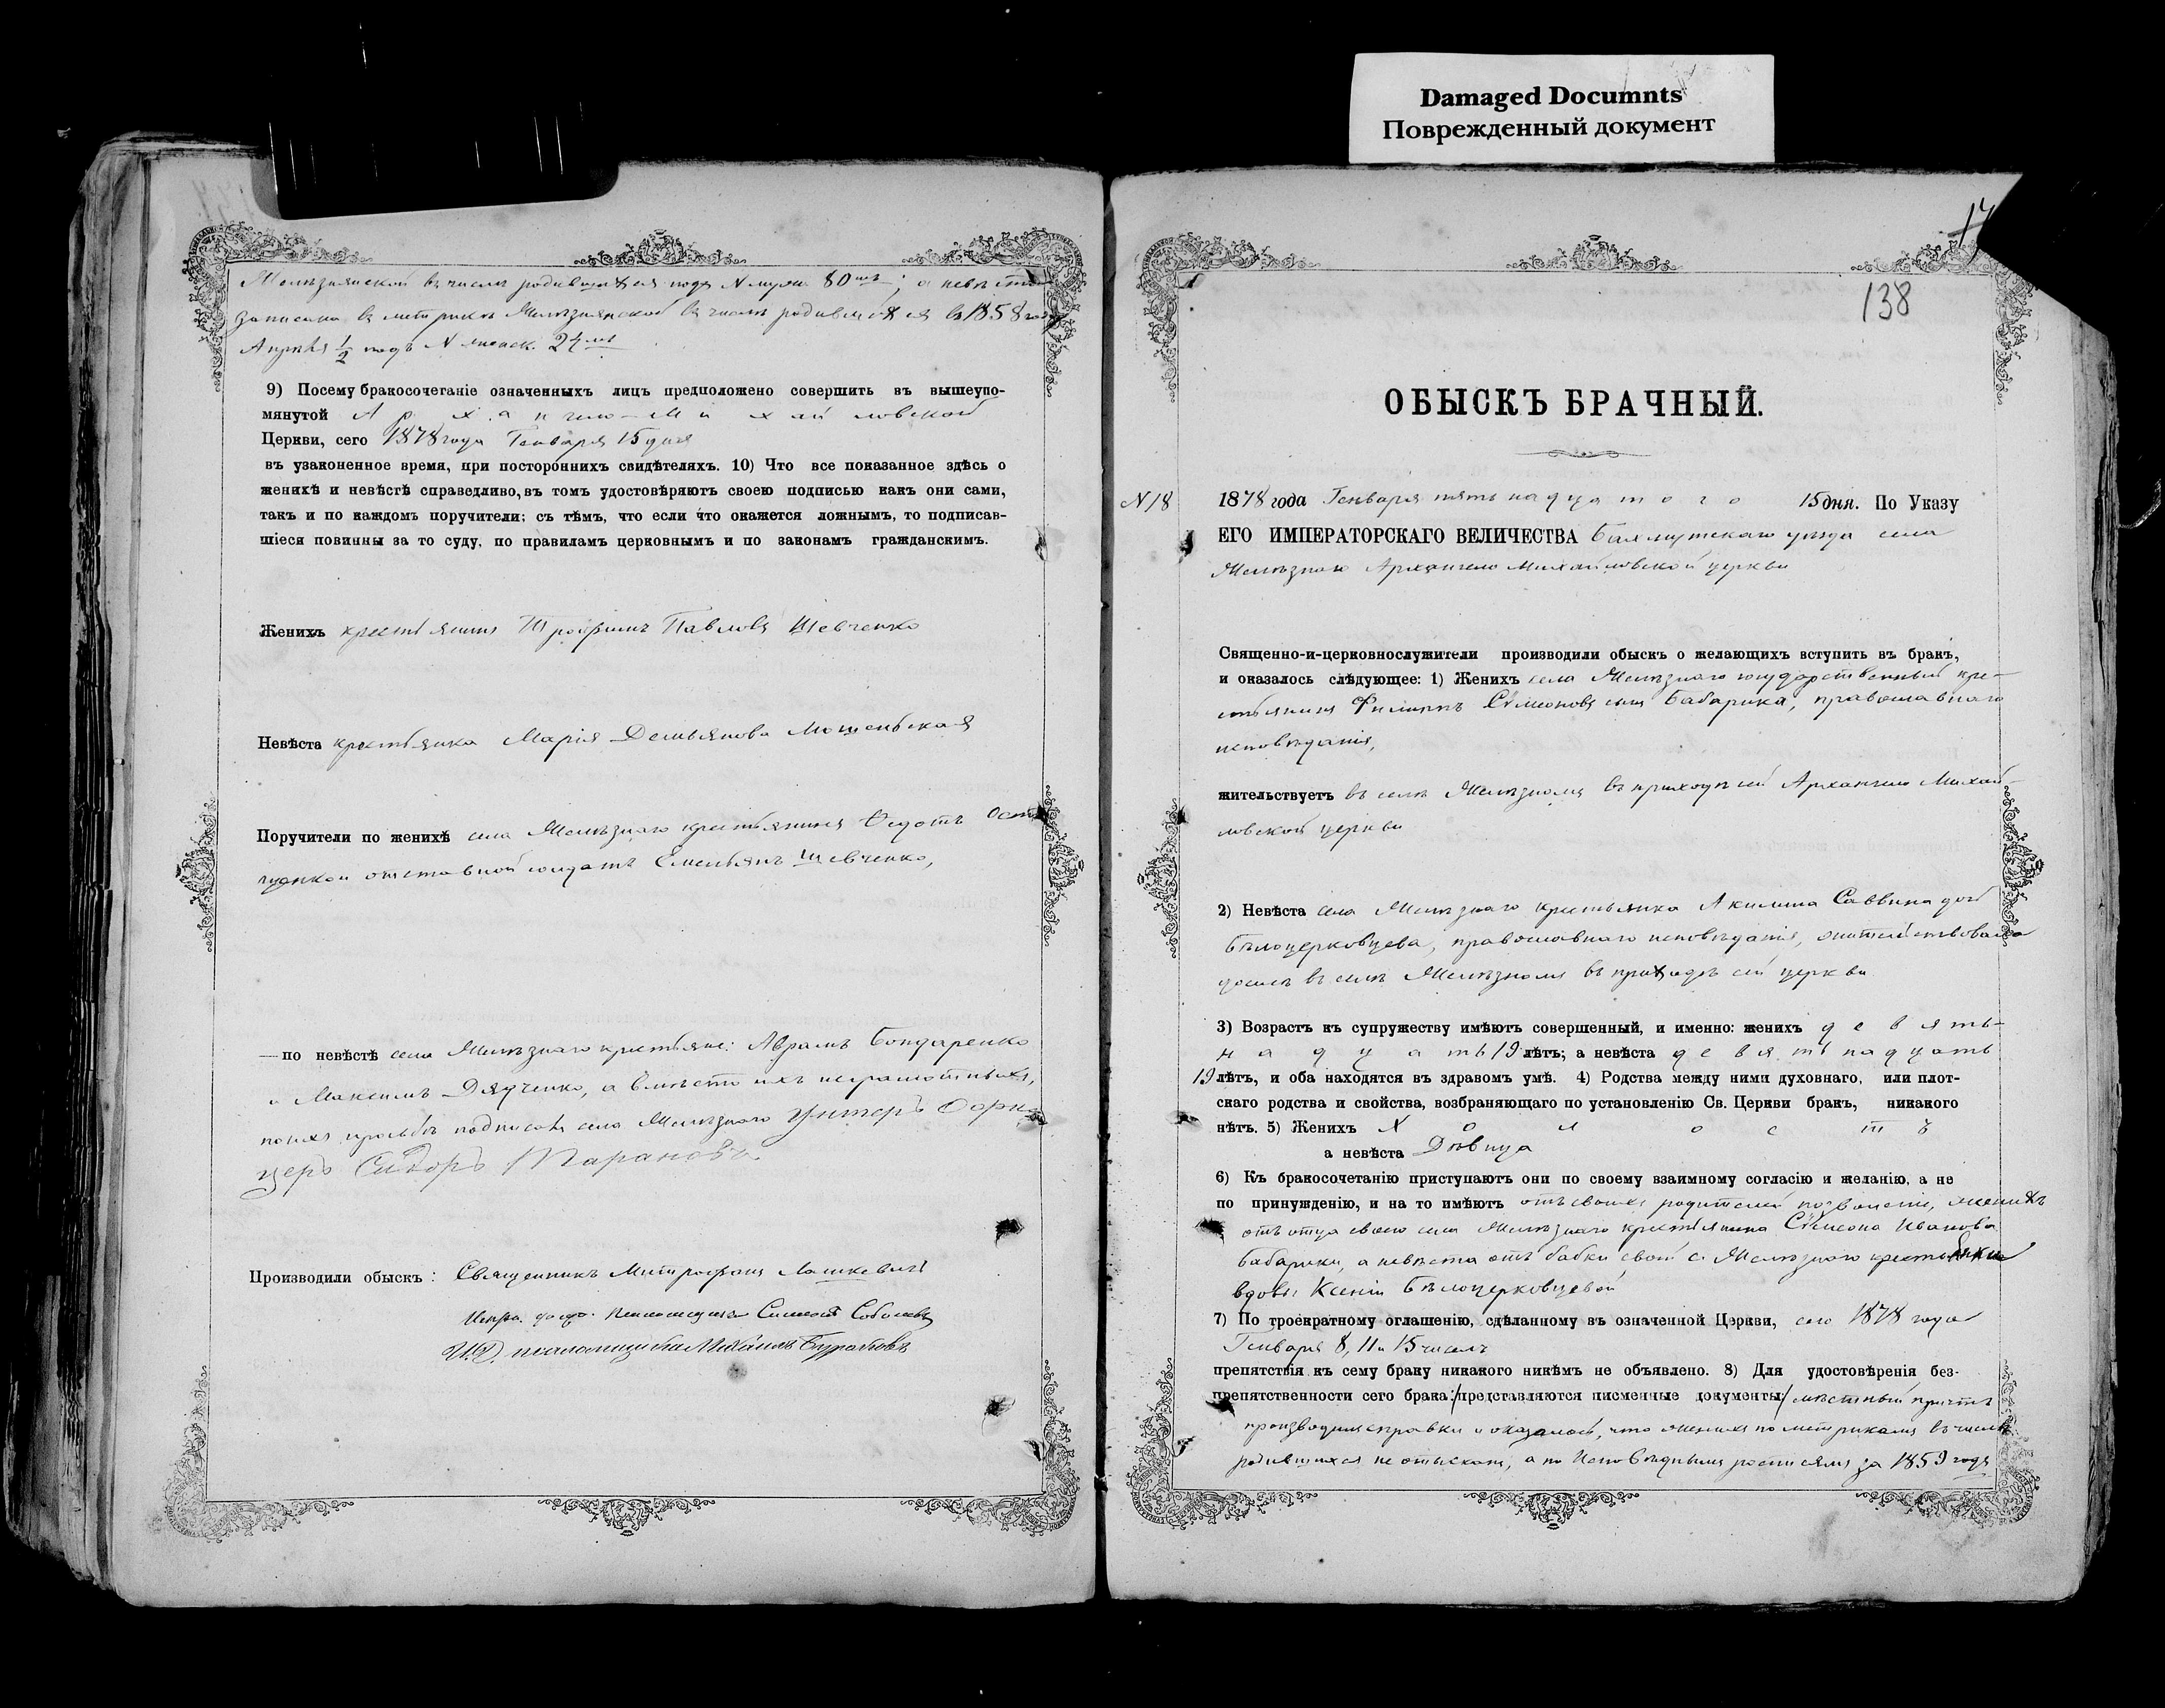 Damaged Documnts
Поврежденный документ
Желѣзнянской въ числѣ родившихся подъ N мужс. 80мъ; а невѣста
записана въ метрикѣ Желѣзнянской въ числѣ родившихся въ 1858 году
Апрѣля 1/2 подъ N женск. 24мъ
9) Посему бракосочетаніе означенныхъ лицъ предположено совершить въ вышеупо-
мянутой Архангело-Михайловской
Церкви, сего 1878 года Генваря 15 дня
въ узаконенное время, при постороннихъ свидѣтеляхъ. 10) Что все показанное здѣсь о
женихѣ и невѣстѣ справедливо, въ томъ удостовѣряютъ своею подписью какъ они сами,
такъ и по каждомъ поручители; съ тѣмъ, что если что окажется ложнымъ, то подписав-
шіеся повинны за то суду, по правиламъ церковнымъ и по законамъ гражданскимъ.
Женихъ крестьянинъ Трофимъ Павловъ Шевченко
Невѣста крестьянка Марія Демьянова
Поручители по женихѣ села Желѣзнаго крестьянинъ Федотъ
отставной солдатъ Емельянъ Шевченко,
— по невѣстѣ села Желѣзнаго крестьяне: Аврамъ Бондаренко
и Максимъ Дядченко, а вмѣсто ихъ неграмотныхъ,
по ихъ просьбѣ подписалъ села Желѣзнаго Унтеръ Офи-
церъ Сидоръ
Производили обыскъ: Священникъ Митрофанъ Лашкевичъ
псаломщика Симеонъ Соболевъ
И.Д. псаломщика Михаилъ
17
138
ОБЫСКЪ БРАЧНЫЙ.
N 18 1878 года Генваря пятьнадцатого 15 дня. По Указу
ЕГО ИМПЕРАТОРСКАГО ВЕЛИЧЕСТВА Бахмутскаго уѣзда села
Желѣзнаго Архангело Михайловской церкви
Священно-и-церковнослужители производили обыскъ о желающихъ вступить въ бракъ,
и оказалось слѣдующее: 1) Женихъ села Желѣзнаго государственный кре-
стьянинъ Филиппъ Сѵмеоновъ сынъ Бабарика, православнаго
исповѣданія,
жительствуетъ въ селѣ Желѣзномъ въ приходѣ сей Архангело Михай-
ловской церкви
2) Невѣста села Желѣзнаго крестьянка Акилина Саввина дочь
Бѣлоцерковцева, православнаго исповѣданія, жительствовала
доселѣ въ селѣ Желѣзномъ въ приходѣ сей церкви
3) Возрастъ къ супружеству имѣютъ совершенный, и именно: женихъ девять-
надцать 19 лѣтъ; а невѣста девятьнадцать
19 лѣтъ, и оба находятся въ здравомъ умѣ. 4) Родства между ними духовнаго, или плот-
скаго родства и свойства, возбраняющаго по установленію Св. Церкви бракъ, никакого
нѣтъ. 5) Женихъ Холостъ
а невѣста Дѣвица
6) Къ бракосочетанію приступаютъ они по своему взаимному согласію и желанію, а не
по принужденію, и на то имѣютъ отъ своихъ родителей позволеніе, женихъ
отъ отца своего села Желѣзнаго крестьянина Сѵмеона Иванова
Бабарики, а невѣста отъ бабки своей с. Желѣзнаго крестьянки
вдовы Ксеніи Бѣлоцерковцевой
7) По троекратному оглашенію, сдѣланному въ означенной Церкви, сего 1878 года
Генваря 8, 11 и 15 чиселъ
препятствія къ сему браку никакого никѣмъ не объявлено. 8) Для удостовѣренія без-
препятственности сего брака: /представляются письменные документы/ мѣстный причтъ
производилъ справки и оказалось, что женихъ по метрикамъ въ числѣ
родившихся не отысканъ, а по Исповѣднымъ росписямъ за 1859 годъ